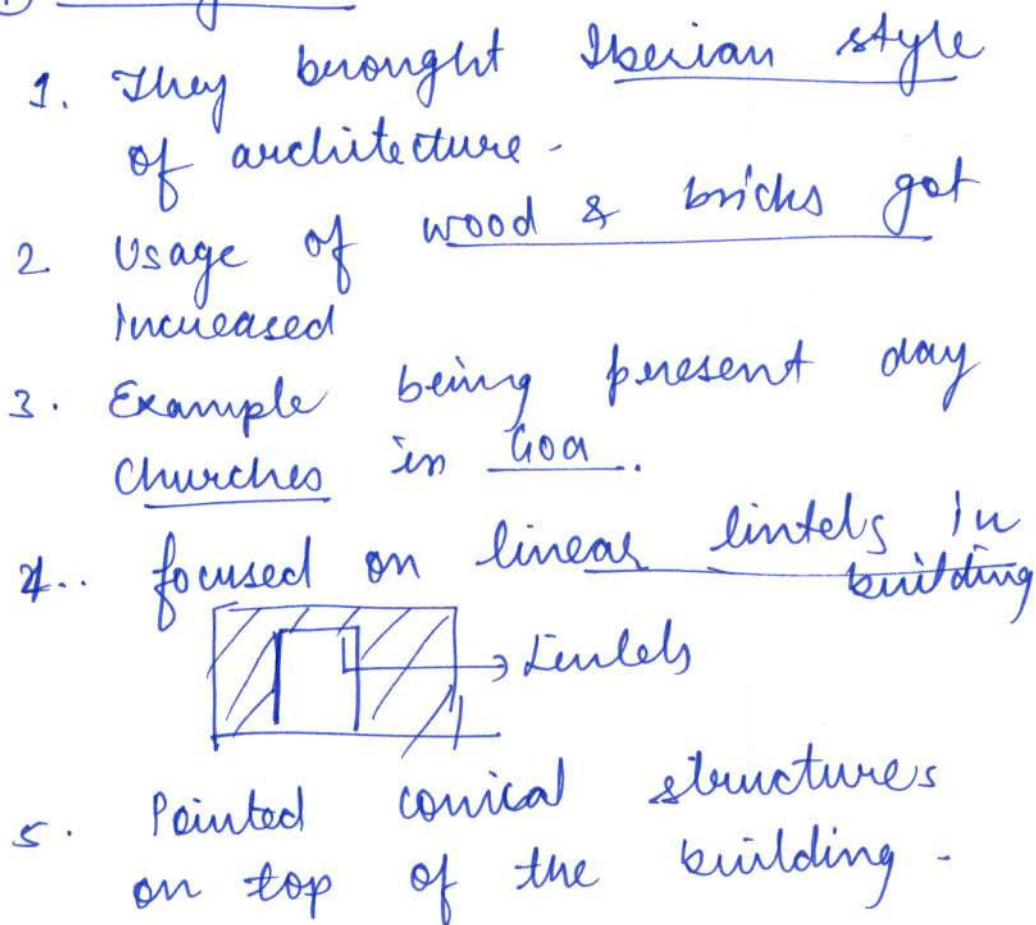 1. They brought Iberian style
of architecture -
2 Usage of wood & bricks got
increased
3. Example being present day
Churches in Goa.
4.. focused on linear lintels in
building
→ Lintels
5. Pointed conical structures
on top of the building -